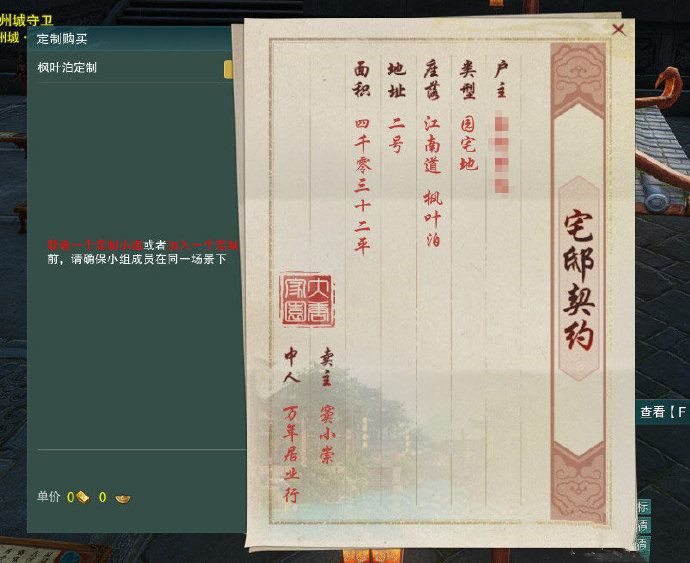 州城守卫
州城·
定制购买
枫叶泊定制
或者
前，请确保小组成员在同一场景下
单价 0 0
宅邸契约
户主
类型 园宅地
座落 江南道 枫叶泊
地址 二号
面积 四千零三十二平
大唐家园
卖主 窦小崇
中人 万年居业行
查看【F
标